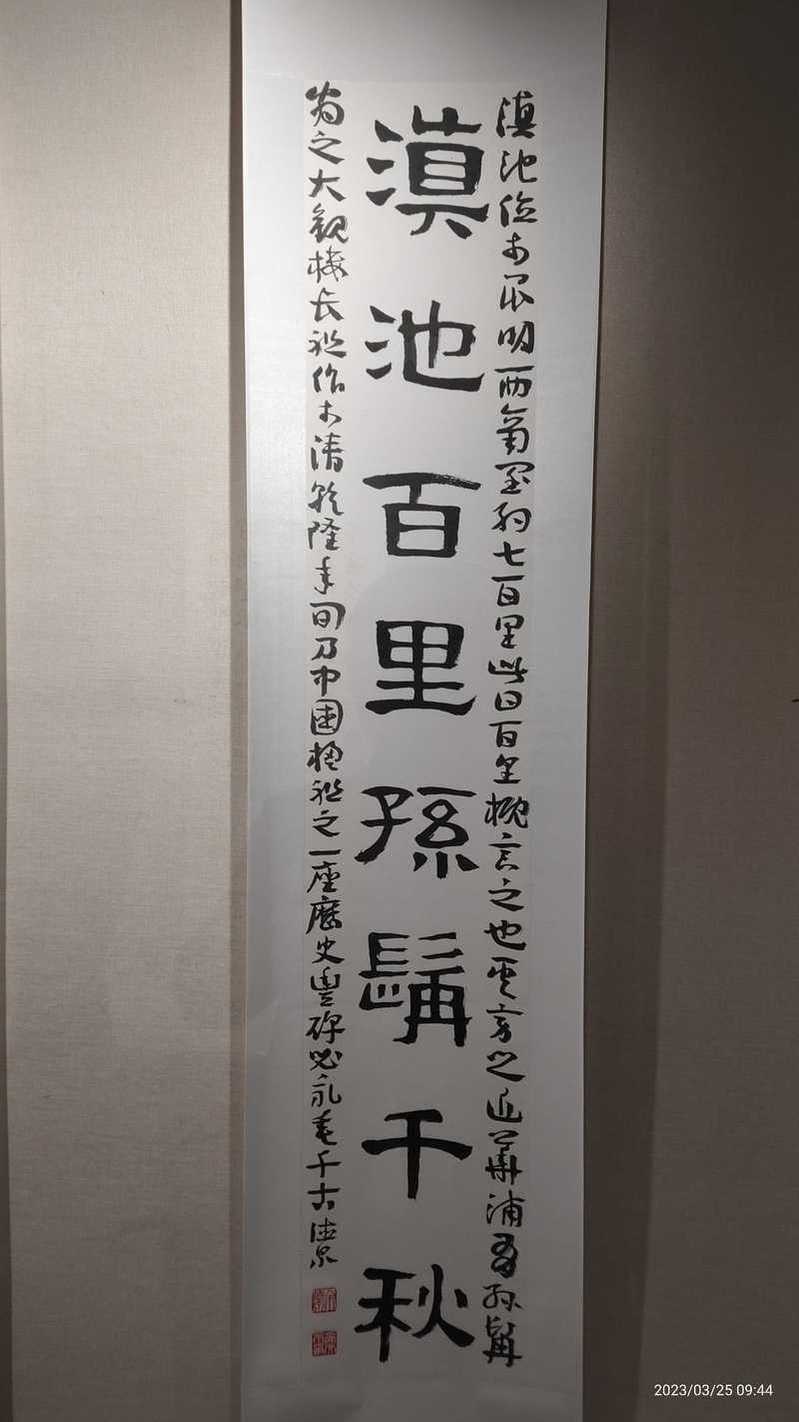 滇池位于昆明西南 約七百里此曰百里概言之也 之近華浦 孫髯
滇池百里孫髯千秋
為之大觀樓長聯作于清乾隆年间乃中國楹聯之一座歷史豐碑必永垂千古 德泉
2023/03/25 09:44